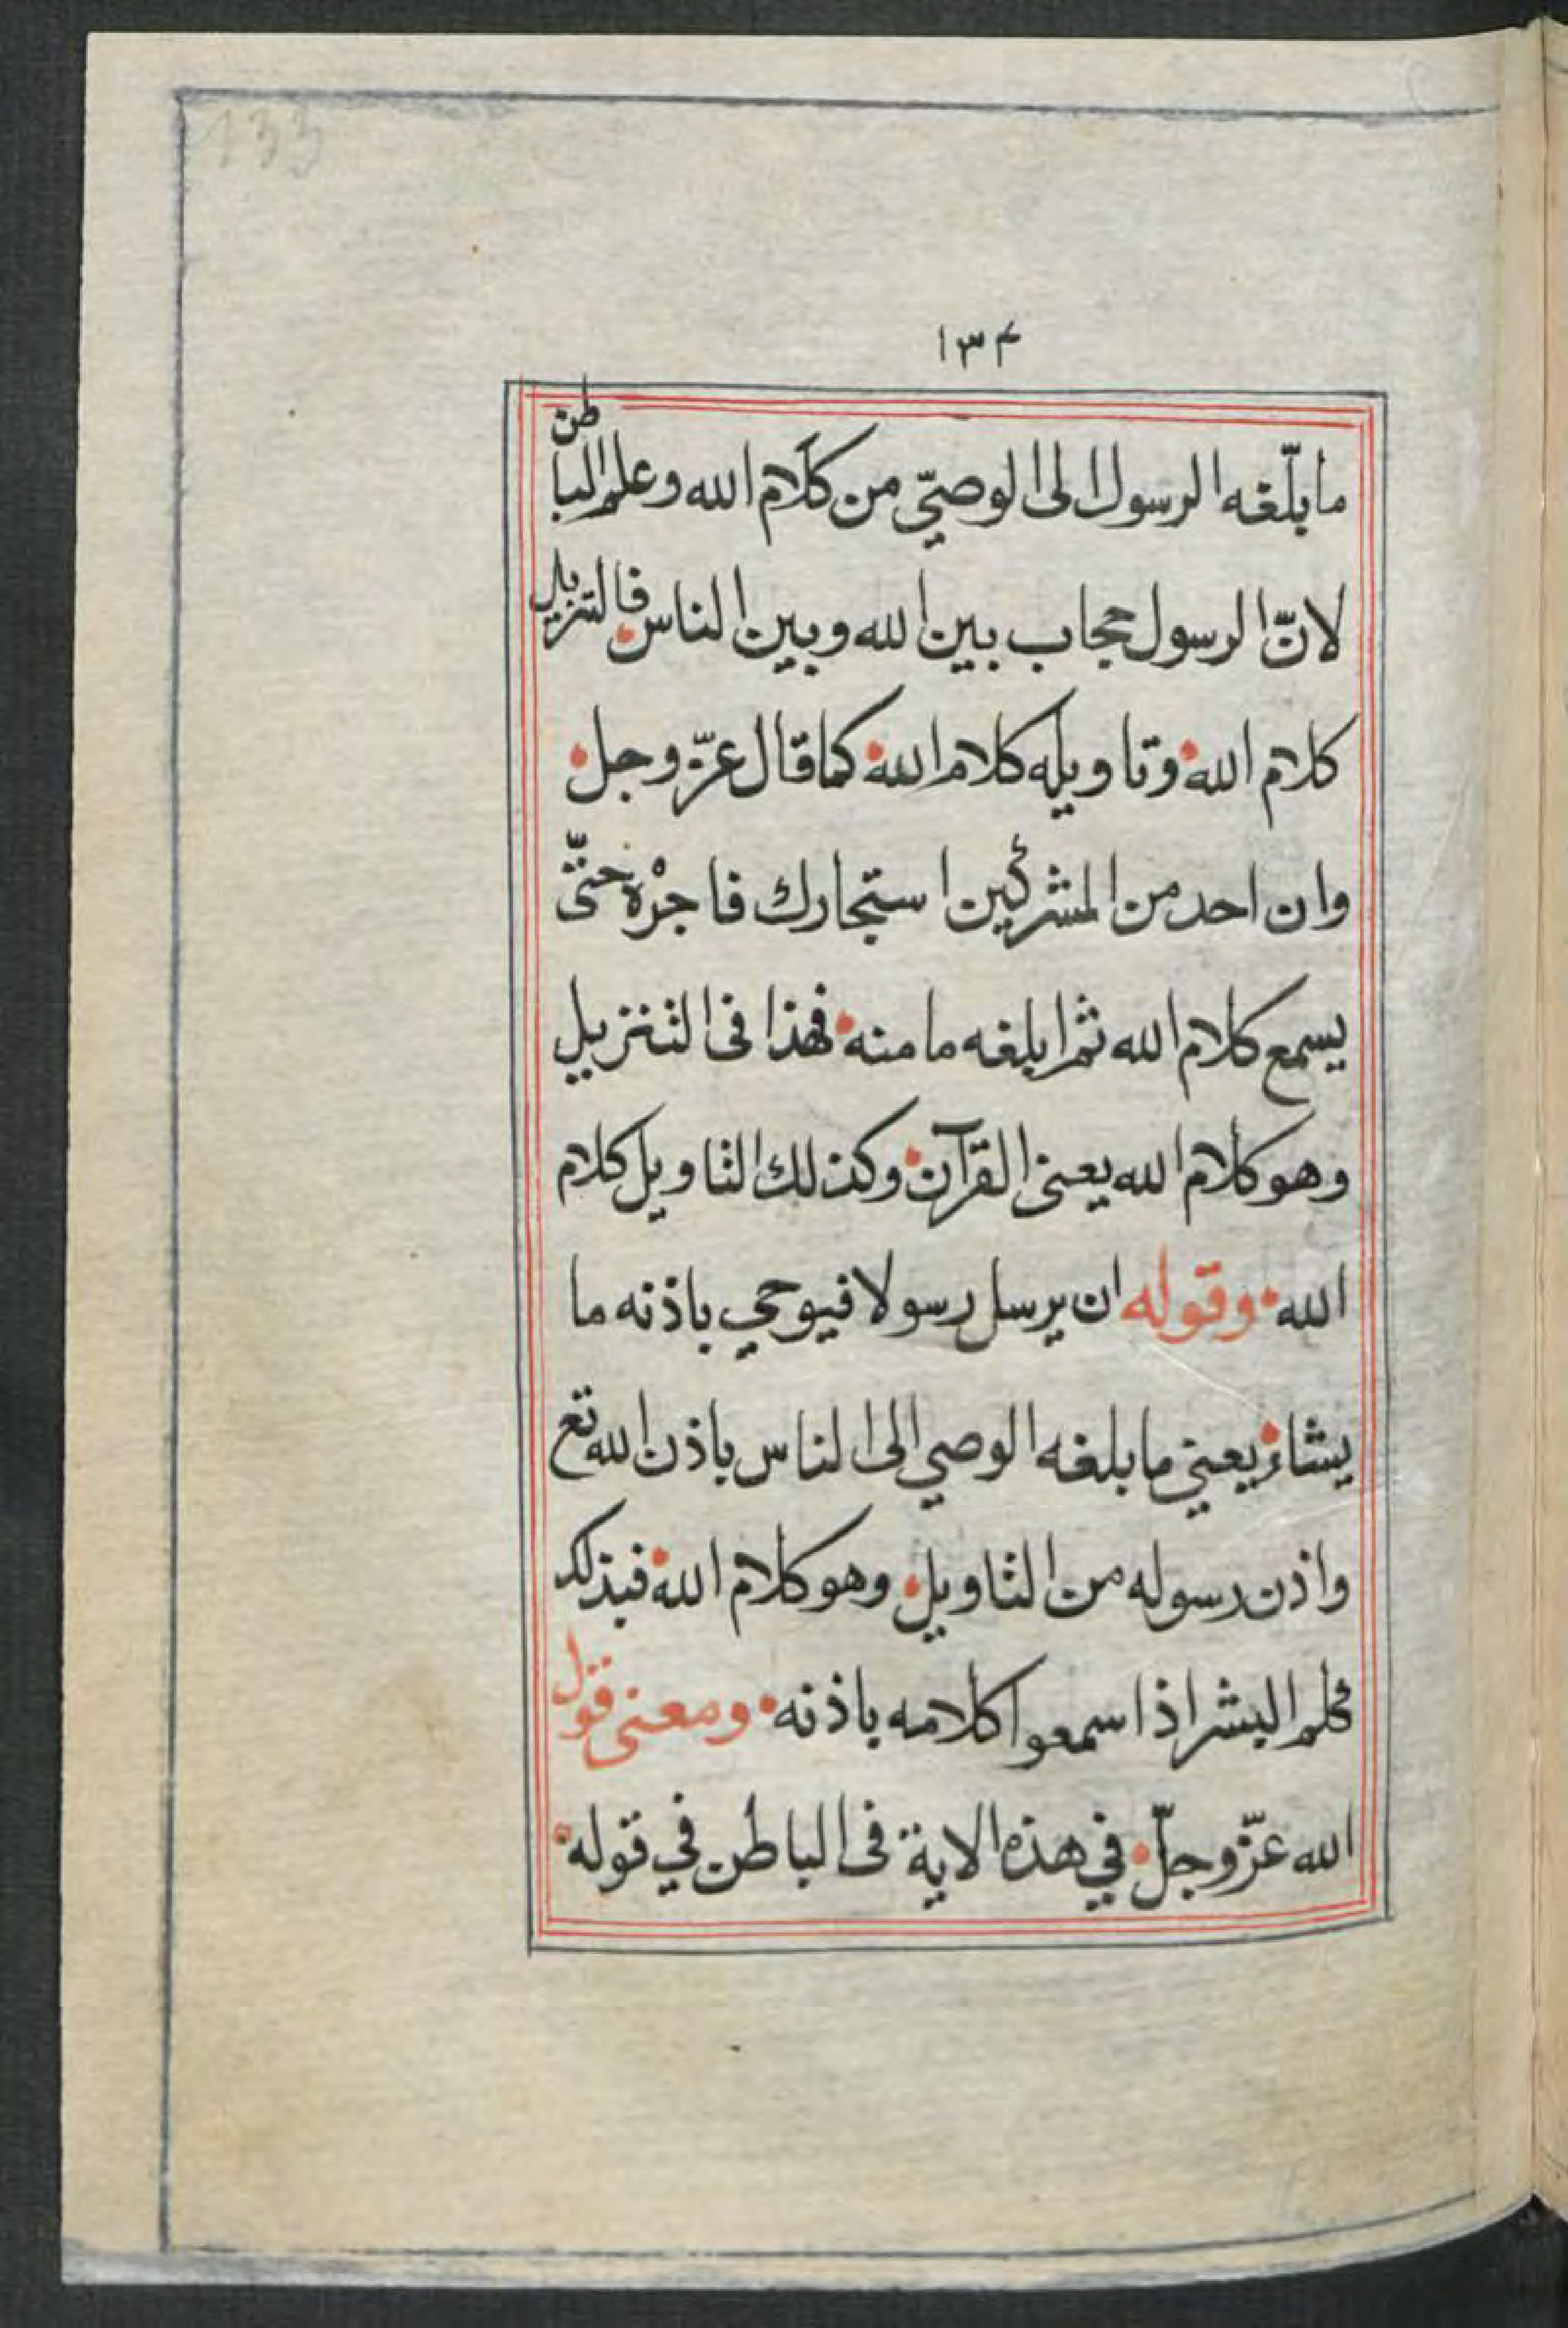 133
١٣٤
ما بلّغه الرسول الى الوصيّ من كلام الله وعلم الباطن
لانّ الرسول حجاب بين الله وبين الناس فالتنزيل
كلام الله وتاويله كلام الله كما قال عزّ وجل
وان احد من المشركين استجارك فاجرْه حتّى
يسمع كلام الله ثم ابلغه مامنه فهذا فى التنزيل
وهو كلام الله يعنى القرآن وكذلك التاويل كلام
الله وقوله ان يرسل رسولا فيوحي باذنه ما
يشاء يعني ما بلغه الوصي الى الناس باذن الله تع
واذن رسوله من التاويل وهو كلام الله فبذلك
كلم البشر اذا سمعوا كلامه باذنه ومعنى قول
الله عزّ وجلّ في هذه الاية فى الباطن في قوله